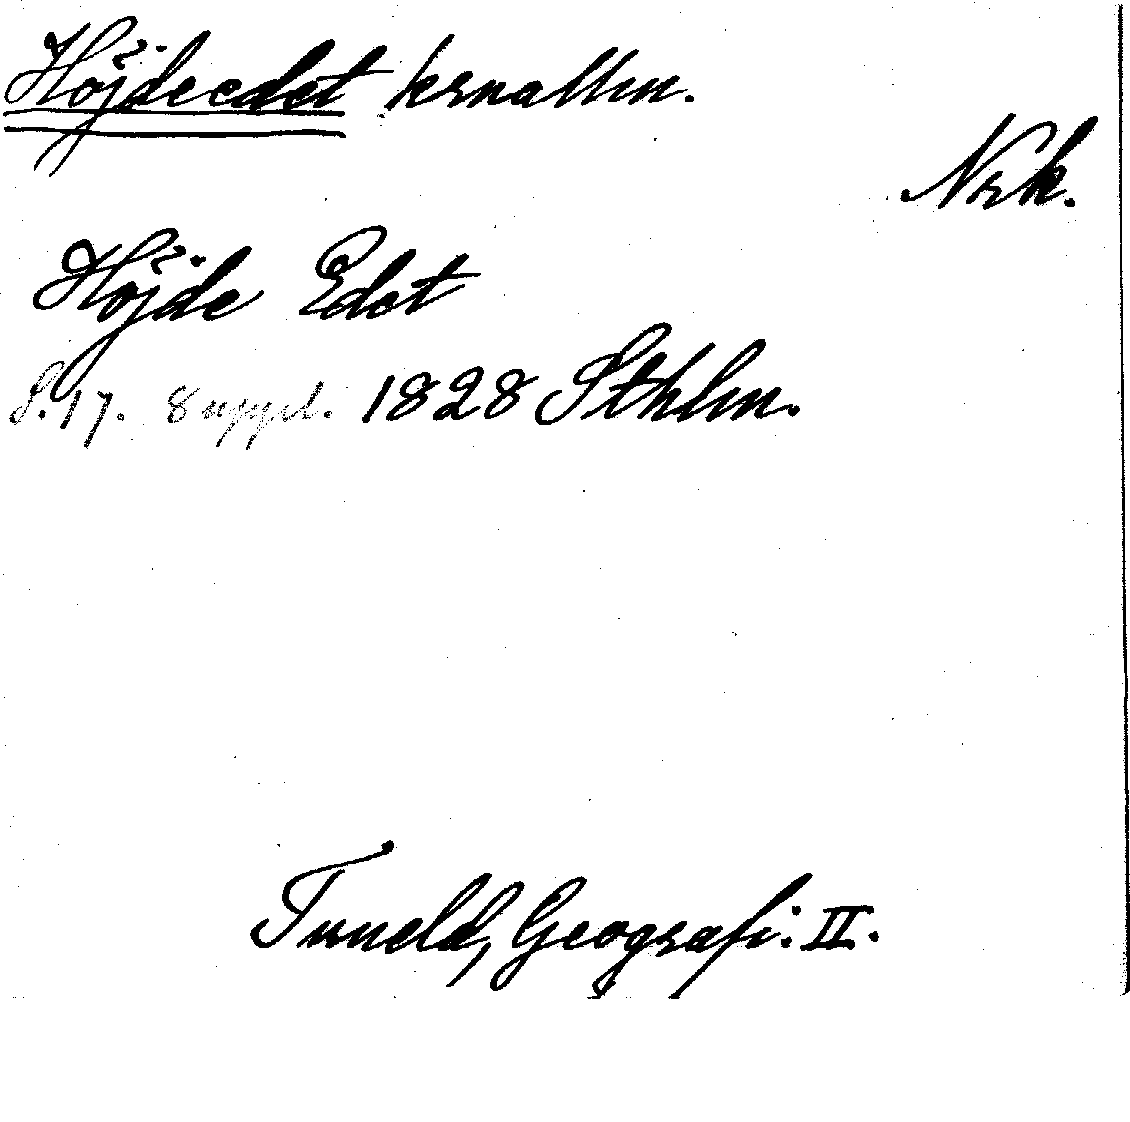 Höjdeedet krnallm.
Nrk.
Höjde Edet
S. 17. 8 uppl. 1828 Sthlm.
Tuneld, Geografi. II.